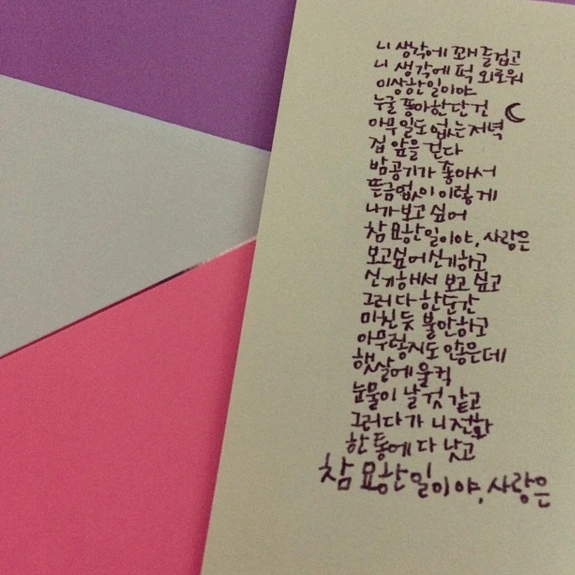 니 생각에 꽤 즐겁고
니 생각에 퍽 외로워
이상한 일이야
누굴 좋아한단 건
아무 일도 없는 저녁
집 앞을 걷다
밤공기가 좋아서
뜬금없이 이렇게
니가 보고 싶어
참 묘한 일이야, 사랑은
보고싶어 신기하고
신기해서 보고 싶고
그러다 한순간
미친듯 불안하고
아무렇지도 않은데
햇살에 울컥
눈물이 날 것 같고
그러다가 니 전화
한 통에 다 낫고
참 묘한 일이야, 사랑은